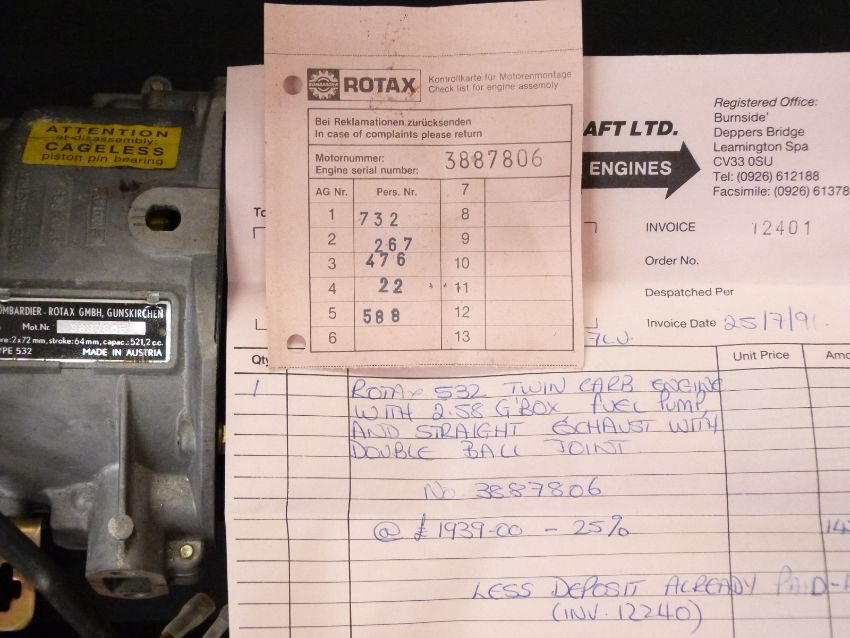 ATTENTION
at disassembly:
CAGELESS
piston pin bearing
BOMBARDIER - ROTAX GMBH, GUNSKIRCHEN
Mot.Nr. 3887806
2x72 mm, stroke: 64 mm, capac.: 521,2 cc.
532 MADE IN AUSTRIA
ROTAX
Kontrollkarte für Motorenmontage
Check list for engine assembly
Bei Reklamationen zurücksenden
In case of complaints please return
Motornummer:
Engine serial number: 3887806
AG Nr. Pers. Nr. 7
1 732 8
2 267 9
3 476 10
4 22 11
5 588 12
6 13
AFT LTD.
ENGINES
Registered Office:
Burnside'
Deppers Bridge
Leamington Spa
CV33 0SU
Tel: (0926) 612188
Facsimile: (0926) 61378
INVOICE 12401
Order No.
Despatched Per
Invoice Date 25/7/91
Qty Unit Price Amo
1 ROTAX 532 TWIN CARB ENGINE
WITH 2.58 G'BOX, FUEL PUMP,
AND STRAIGHT EXHAUST WITH
DOUBLE BALL JOINT
No 3887806
@ £1939-00 - 25%
LESS DEPOSIT ALREADY PAID
(INV. 12240)